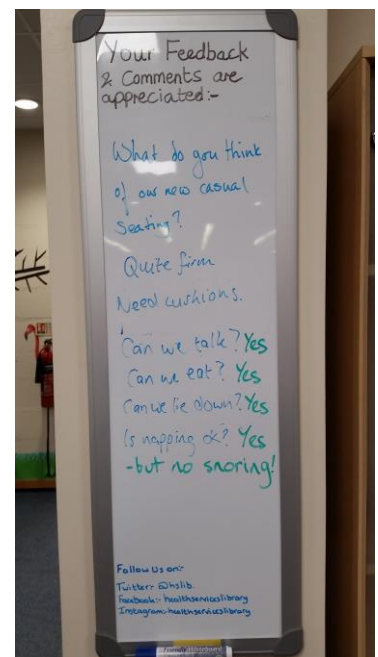 Your Feedback
& Comments are
appreciated:-
What do you think
of our new casual
seating?
Quite firm
Need cushions.
Can we talk? Yes
Can we eat? Yes
Can we lie down? Yes
Is napping ok? Yes
-but no snoring!
Follow Us on:-
Twitter:- @hslib
Facebook:- healthserviceslibrary
Instagram:- healthserviceslibrary